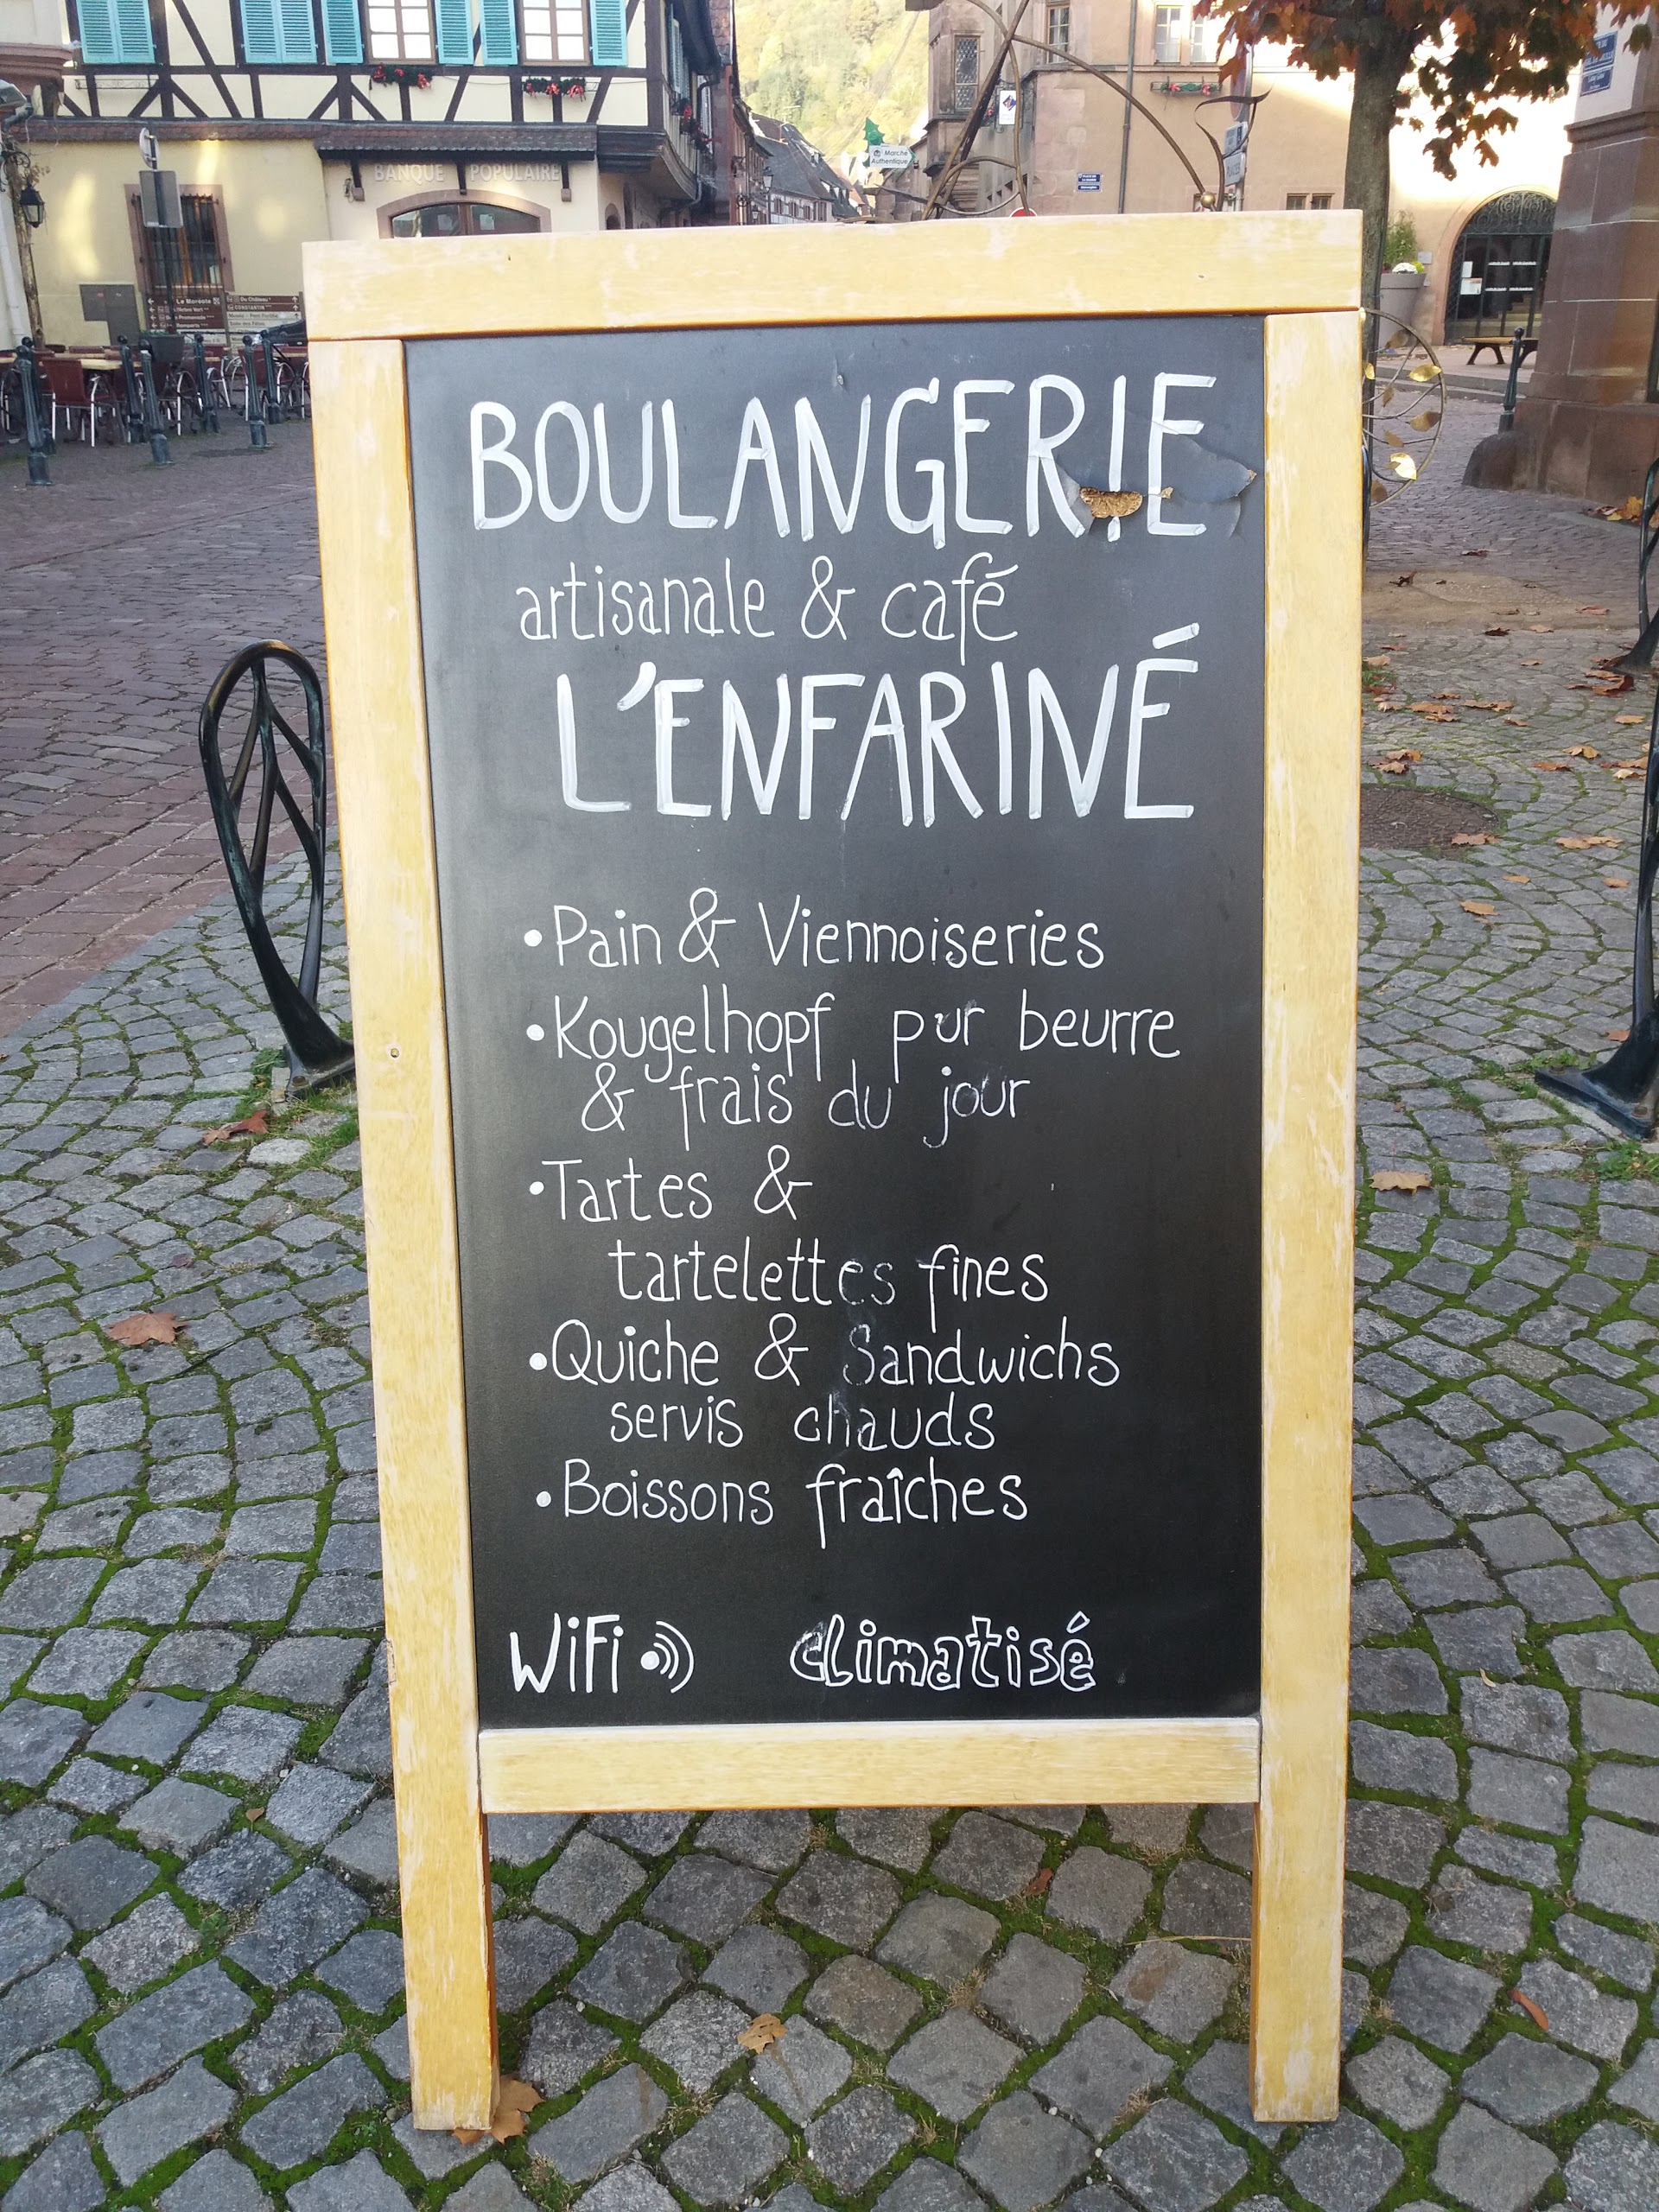 BANQUE POPULAIRE
Marché
Authentique
BOULANGERIE
artisanale & café
L'ENFARINÉ
•Pain & Viennoiseries
•Kougelhopf pur beurre
& frais du jour
•Tartes &
tartelettes fines
•Quiche & Sandwichs
servis chauds
•Boissons fraîches
WiFi climatisé